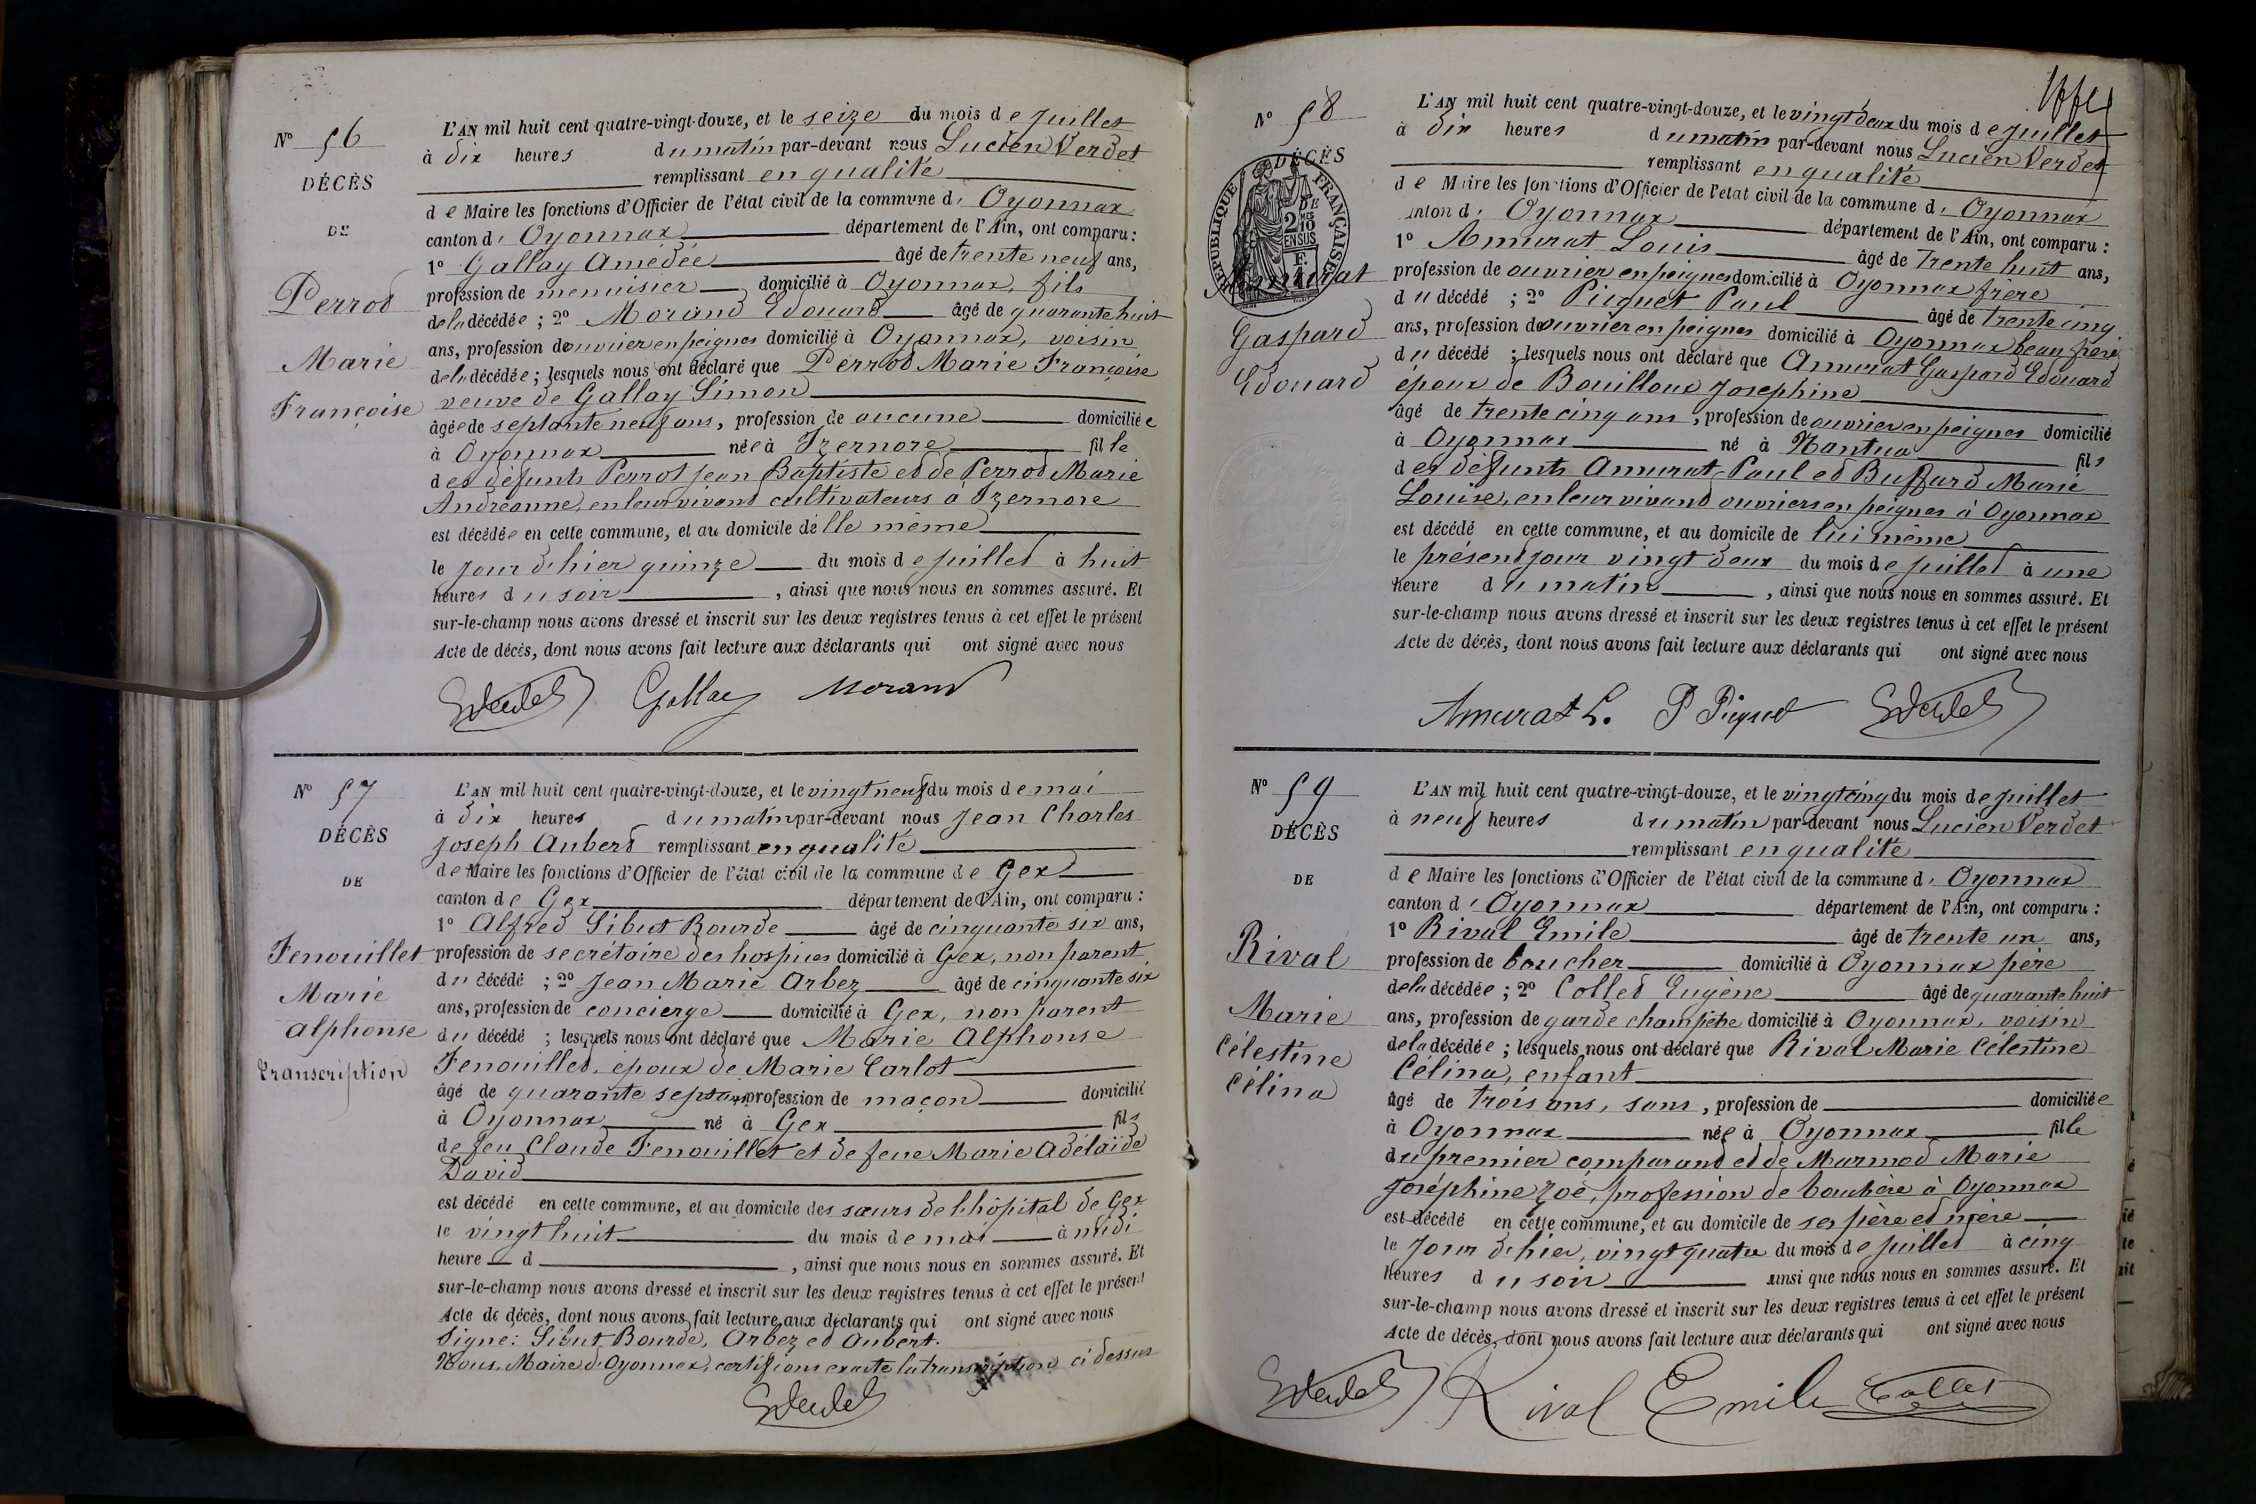 N° 56
DÉCÈS
DE
Perrod
Marie
Françoise
L'AN mil huit cent quatre-vingt-douze, et le seize du mois de juillet
à dix heures du matin par-devant nous Lucien Verdet
remplissant en qualité
de Maire les fonctions d'Officier de l'état civil de la commune d' Oyonnax
canton d' Oyonnax département de l'Ain, ont comparu :
1° Gallay Amédée âgé de trente neuf ans,
profession de menuisier domicilié à Oyonnax, fils
de la décédée ; 2° Morand Edouard âgé de quarante huit
ans, profession de ouvrier en peignes domicilié à Oyonnax, voisin
de la décédée ; lesquels nous ont déclaré que Perrod Marie Françoise
veuve de Gallay Simon
âgée de septante neuf ans, profession de aucune domiciliée
à Oyonnax née à Izernore fille
des défunts Perrot Jean Baptiste et de Perrod Marie
Andréanne, en leur vivant cultivateurs à Izernore
est décédée en cette commune, et au domicile d'elle même
le jour d'hier quinze du mois de juillet à huit
heures du soir, ainsi que nous nous en sommes assuré. Et
sur-le-champ nous avons dressé et inscrit sur les deux registres tenus à cet effet le présent
Acte de décès, dont nous avons fait lecture aux déclarants qui ont signé avec nous
Gallay Morand
N° 57
DÉCÈS
DE
Fenouillet
Marie
Alphonse
Transcription
L'AN mil huit cent quatre-vingt-douze, et le vingt neuf du mois de mai
à dix heures du matin par-devant nous Jean Charles
Joseph Aubert remplissant en qualité
de Maire les fonctions d'Officier de l'état civil de la commune de Gex
canton de Gex département de l'Ain, ont comparu :
1° Alfred Sibut Bourde âgé de cinquante six ans,
profession de secrétaire des hospices domicilié à Gex, non parent
du décédé ; 2° Jean Marie Arbez âgé de cinquante six
ans, profession de concierge domicilié à Gex, non parent
du décédé ; lesquels nous ont déclaré que Marie Alphonse
Fenouillet, époux de Marie Carlot
âgé de quarante sept ans, profession de maçon domicilié
à Oyonnax né à Gex fils
de feu Claude Fenouillet et de feue Marie Adélaïde
David
est décédé en cette commune, et au domicile des sœurs de l'hôpital de Gex
le vingt huit du mois de mai à midi
heure d , ainsi que nous nous en sommes assuré. Et
sur-le-champ nous avons dressé et inscrit sur les deux registres tenus à cet effet le présent
Acte de décès, dont nous avons fait lecture aux déclarants qui ont signé avec nous
Signé : Sibut Bourde, Arbez et Aubert.
Nous, Maire d'Oyonnax, certifions exacte la transcription ci dessus
N° 58
DÉCÈS
DE
RÉPUBLIQUE FRANÇAISE
2/10 EN SUS
Ammurat
Gaspard
Edouard
L'AN mil huit cent quatre-vingt-douze, et le vingt deux du mois de juillet
à dix heures du matin par-devant nous Lucien Verdet
remplissant en qualité
de Maire les fonctions d'Officier de l'état civil de la commune d' Oyonnax
canton d' Oyonnax département de l'Ain, ont comparu :
1° Amurat Louis âgé de trente huit ans,
profession de ouvrier en peignes domicilié à Oyonnax frère
du décédé ; 2° Picquet Paul âgé de trente cinq
ans, profession de ouvrier en peignes domicilié à Oyonnax beau frère
du décédé ; lesquels nous ont déclaré que Amurat Gaspard Edouard
époux de Bouilloux Josephine
âgé de trente cinq ans, profession de ouvrier en peignes domicilié
à Oyonnax né à Nantua fils
des défunts Amurat Paul et Buffard Marie
Louise, en leur vivant ouvriers en peignes à Oyonnax
est décédé en cette commune, et au domicile de lui même
le présent jour vingt deux du mois de juillet à une
heure du matin, ainsi que nous nous en sommes assuré. Et
sur-le-champ nous avons dressé et inscrit sur les deux registres tenus à cet effet le présent
Acte de décès, dont nous avons fait lecture aux déclarants qui ont signé avec nous
Amurat L. P Piquet
N° 59
DÉCÈS
DE
Rival
Marie
Célestine
Célina
L'AN mil huit cent quatre-vingt-douze, et le vingt cinq du mois de juillet
à neuf heures du matin par-devant nous Lucien Verdet
remplissant en qualité
de Maire les fonctions d'Officier de l'état civil de la commune d' Oyonnax
canton d' Oyonnax département de l'Ain, ont comparu :
1° Rival Emile âgé de trente un ans,
profession de boucher domicilié à Oyonnax père
de la décédée ; 2° Collet Eugène âgé de quarante huit
ans, profession de garde champêtre domicilié à Oyonnax, voisin
de la décédée ; lesquels nous ont déclaré que Rival Marie Célestine
Célina, enfant
âgé de trois ans, sans, profession de domiciliée
à Oyonnax née à Oyonnax fille
du premier comparant et de Marmod Marie
Joséphine Zoé, profession de bouchère à Oyonnax
est décédé en cette commune, et au domicile de ses père et mère
le jour d'hier, vingt quatre du mois de juillet à cinq
heures du soir ainsi que nous nous en sommes assuré. Et
sur-le-champ nous avons dressé et inscrit sur les deux registres tenus à cet effet le présent
Acte de décès, dont nous avons fait lecture aux déclarants qui ont signé avec nous
Rival Emile Collet